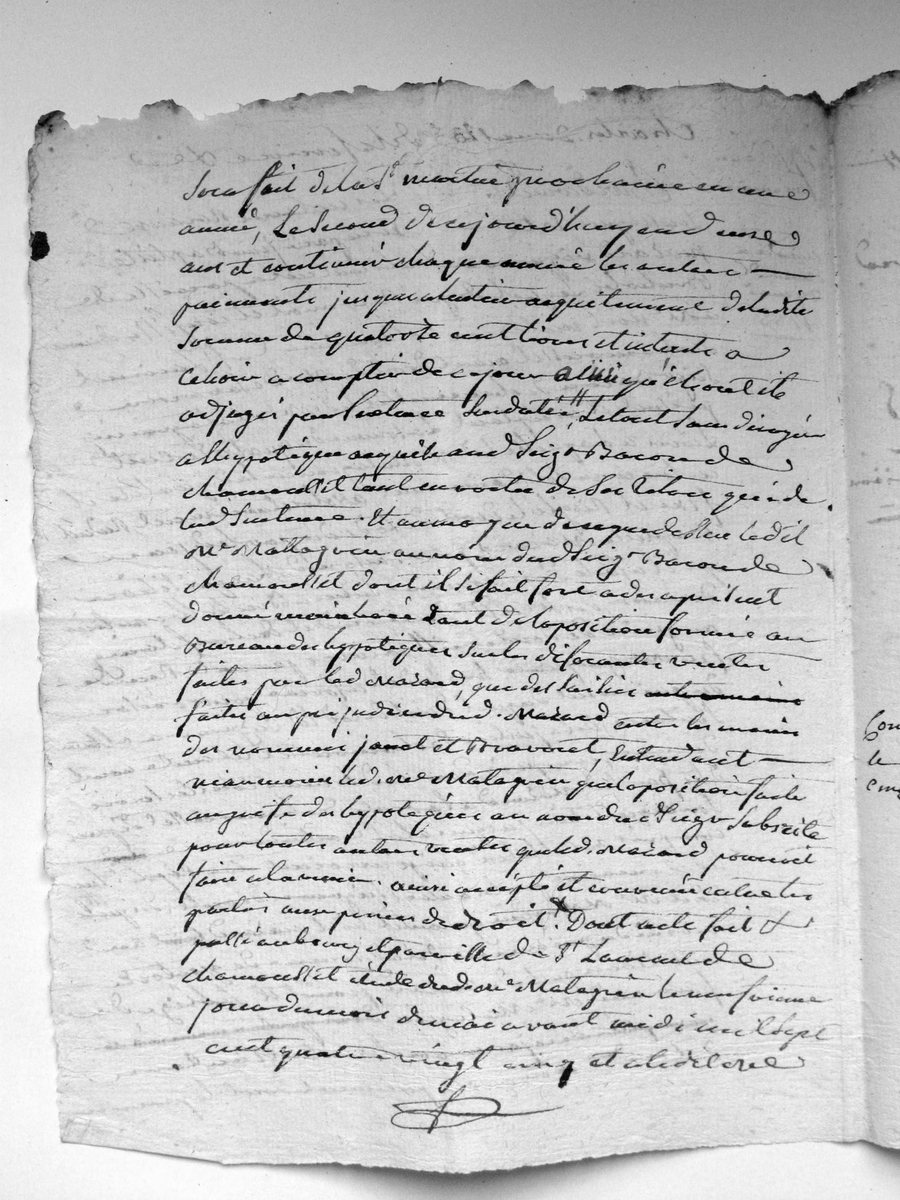 Sera fait de la St martin prochaine en une
année, Le Second de ce jourd'huy en deux
ans et continuer chaque année les autres
paiements jusqu'a l'entier acquittement de ladite
Somme de quatorze cent livres et interets a
echoir a compter de ce jour ainsi qu'ils ont été
adjugés par Sentence Susdatée, Le tout Sans déroger
a l'hypotèque acquise aud Seigr Baron de
chamousset tant en vertu de Ses titres que de
lad Sentence. Et au moyen de ce que dessus led it
Me Mattaguin au nom dud Seigr Baron de
chamousset dont il Se fait fort a des a présent
donné mainlevée tant de l'oposition formée au
Bureau des hypoteques Sur les différentes ventes
faites par led Mazard, que des Saisies
faites au préjudice dud. Mazard entre les mains
des nommés janet et Bravoret, Entendant
néanmoins led. Me Mataguin que l'oposition faite
au greffe des hypoteques au nom dud Seigr Subsiste
pour toutes autres ventes que led. Mazard pourroit
faire a l'avenir. ainsi accepté et convenu entre les
parties aux peines de droit. Dont acte fait &
passé au bourg et paroisse de St Laurent de
chamousset étude dud Me Mataguin le neufvieme
jour du mois de mai avant midi mil Sept
cent quatre vingt cinq et a led